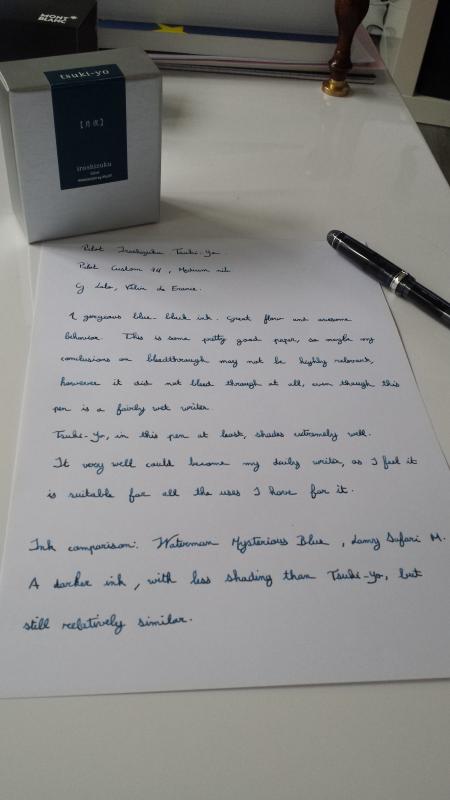 MONT
BLANC
tsuki-yo
【月夜】
iroshizuku
Pilot Iroshizuku Tsuki-Yo.
Pilot Custom 74, Medium nib.
G Lalo, Vélin de France.
A gorgeous blue-black ink. Great flow and awesome
behavior. This is some pretty good paper, so maybe my
conclusions on bleedthrough may not be highly relevant,
however it did not bleed through at all, even though this
pen is a fairly wet writer.
Tsuki-Yo, in this pen at least, shades extremely well.
It very well could become my daily writer, as I feel it
is suitable for all the uses I have for it.
Ink comparison: Waterman Mysterious Blue, Lamy Safari M.
A darker ink, with less shading than Tsuki-Yo, but
still relatively similar.